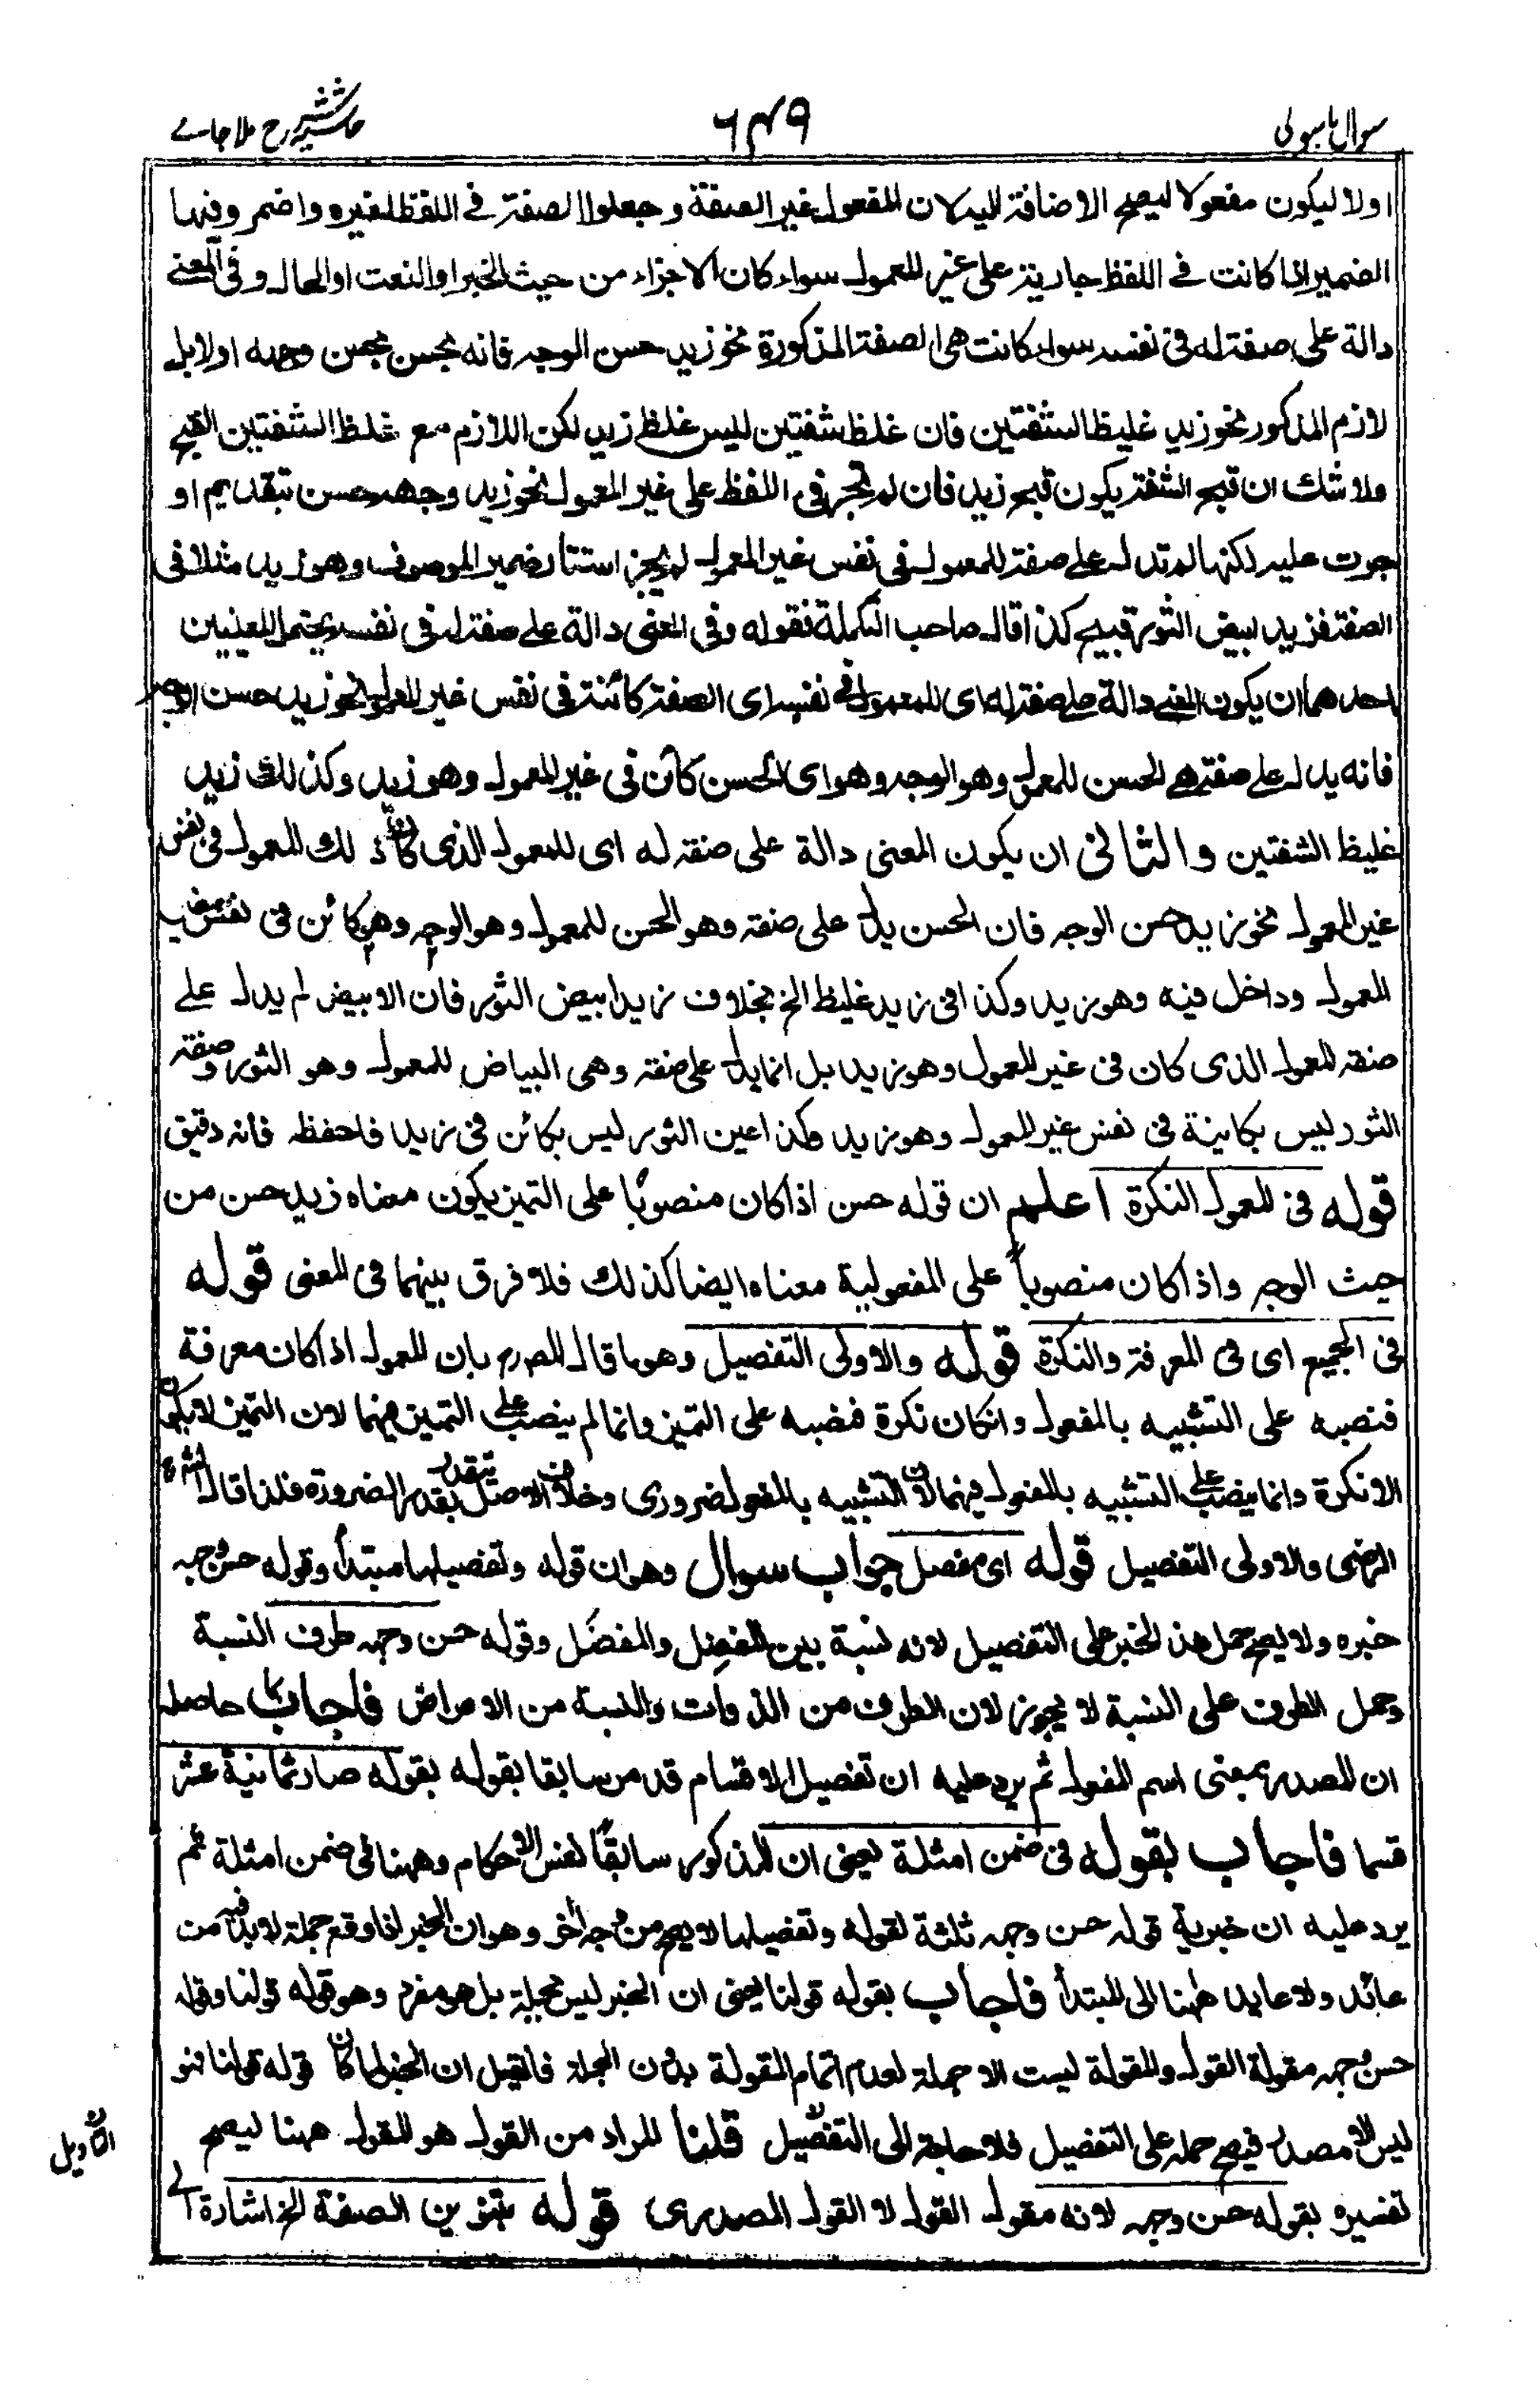 سوال باسولی
٦٤٩
حاشیه شرح ملا جامے
اولا ليكون مفعولا ليصح الاضافة اليه لان المفعول غير الصفة وجعلوا الصفة فے اللفظ لغيره واضمروا فيها
الضمير اذا كانت فے اللفظ جارية على غير المعمول سواء كان الاجزاء من حيث الخبر او النعت او الحال وفى المعنے
دالة على صفة له فى نفسه سواء كانت هى الصفة المذكورة نحو زيد حسن الوجه فانه يحسن بحسن وجهه اولا بل
لازم المذكور نحو زيد غليظ الشفتين فان غلظ شفتين ليس غلظ زيد لكن اللازم مع غلظ الشفتين القبح
ولا شك ان قبح الشفة يكون قبح زيد فان لم تجر فى اللفظ على غير المعمول نحو زيد وجهه حسن بتقديم او
جرت عليه لكنها لم تدل على صفة للمعمول فى نفس غير المعمول لم يجز استتار ضمير الموصوف وهو زيد مثلا فى
الصفة فزيد ابيض الثور قبيح كذا قال صاحب التكملة فقوله وفى المعنى دالة على صفة له فى نفسه يحتمل المعنيين
احدهما ان يكون المعنے دالة على صفة له اى للمعمول فى نفسه اى الصفة كائنة فى نفس غير المعمول نحو زيد حسن الوجه
فانه يدل على صفة هے الحسن للمعمول وهو الوجه وهو اى الحسن كائن فى غير المعمول وهو زيد وكذلك زيد
غليظ الشفتين والثانى ان يكون المعنى دالة على صفة له اى للمعمول الذى كان ذلك المعمول فى نفس
غير المعمول نحو زيد حسن الوجه فان الحسن يدل على صفة وهو الحسن للمعمول وهو الوجه وهو كائن فى نفس غير
المعمول وداخل فيه وهو زيد وكذا فى زيد غليظ الخ بخلاف زيد ابيض الثور فان الابيض لم يدل على
صفة للمعمول الذى كان فى غير المعمول وهو زيد بل انما يدل على صفة وهى البياض للمعمول وهو الثور وصفة
الثور ليس بكاينة فى نفس غير المعمول وهو زيد وكذا عين الثور ليس بكائن فى زيد فاحفظه فانه دقيق
قوله فى المعمول النكرة اعلم ان قوله حسن اذا كان منصوبًا على التميز يكون معناه زيد حسن من
حيث الوجه واذا كان منصوباً على المفعولية معناه ايضا كذلك فلا فرق بينهما فى المعنى قوله
فى الجميع اى فى المعرفة والنكرة قوله والاولى التفصيل وهو ما قال المصرم بان المعمول اذا كان معرفة
فنصبه على التشبيه بالمفعول وانكان نكرة فنصبه على التميز وانما لم ينصب على التميز فيهما لان التميز لا يكون
الا نكرة وانما ينصب على التشبيه بالمفعول فيهما لان التشبيه بالمفعول ضرورى وخلاف الاصل يتقدر بقدر الضرورة فلذا قال الشرح
الرضى والاولى التفصيل قوله اى مفصل جواب سوال وهو ان قوله وتفصيلها مبتدأ وقوله حسن وجهه
خبره ولا يصح حمل هذا الخبر على التفصيل لانه نسبة بين المفصِل والمفصَل وقوله حسن وجهه طرف النسبة
وحمل الطرف على النسبة لا يجوز لان الطرف من الذوات والنسبة من الاعراض فاجاب بما حاصله
ان المصدر بمعنى اسم المفعول ثم يرد عليه ان تفصيل الاقسام قد مر سابقا بقوله بقوله صار ثمانية عشر
قسما فاجاب بقوله فى ضمن امثلة يعنى ان المذكور سابقًا نفس الاحكام وههنا فى ضمن امثلة ثم
يرد عليه ان خبرية قوله حسن وجهه ثلثة لقوله وتفصيلها لا يصح من وجه آخر وهو ان الخبر اذا وقع جملة لابد فيه من
عائد ولا عايد ههنا الى المبتدأ فاجاب بقوله قولنا يعنى ان الخبر ليس بجملة بل هو مفرد وهو قوله قولنا وقوله
حسن وجهه مقولة القول والمقولة ليست الا جملة لعدم اتمام المقولة بدون الجملة فانقيل ان الخبر لما كان قوله قولنا فهو
ليس الا مصدر فيصح حمله على التفصيل فلا حاجة الى التفصيل قلنا المراد من القول هو المقول ههنا ليصح
التاويل
تفسيره بقوله حسن وجهه لانه مقول القول لا القول المصدرى قوله بتنوين الصفة الخ اشارة الے